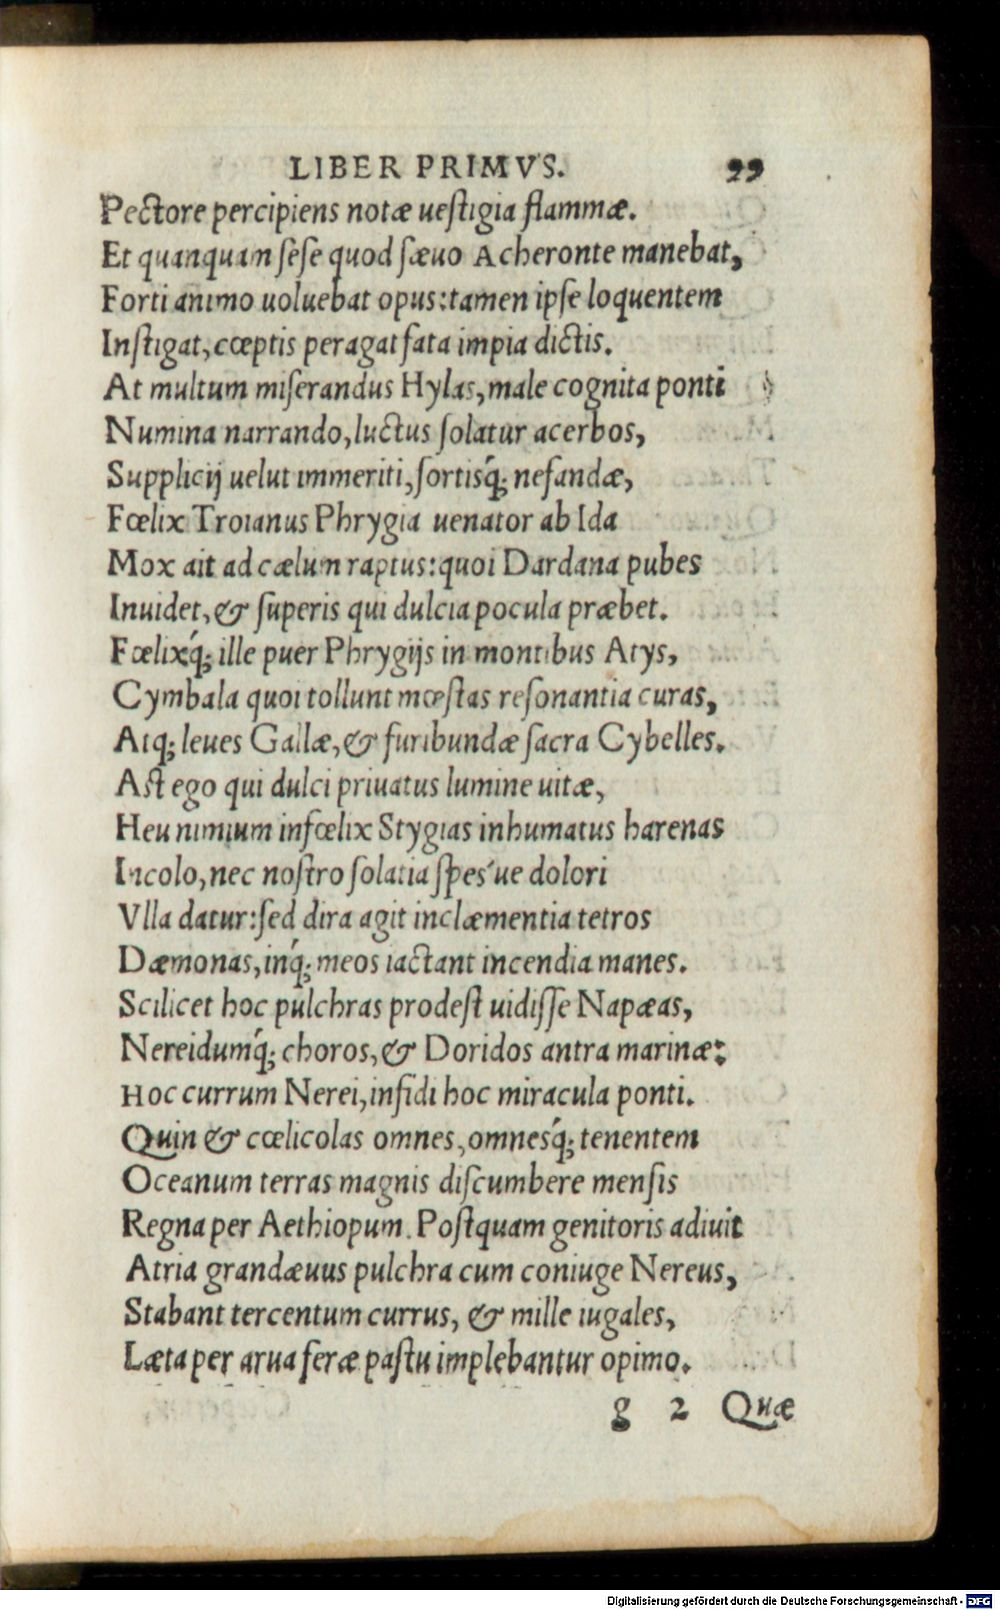 LIBER PRIMVS. 99
Pectore percipiens notæ uestigia flammæ.
Et quanquam sese quod sæuo Acheronte manebat,
Forti animo uoluebat opus: tamen ipse loquentem
Instigat, cœptis peragat fata impia dictis.
At multum miserandus Hylas, male cognita ponti
Numina narrando, luctus solatur acerbos,
Supplicij uelut immeriti, sortisq́; nefandæ,
Fœlix Troianus Phrygia uenator ab Ida
Mox ait ad cælum raptus: quoi Dardana pubes
Inuidet, & superis qui dulcia pocula præbet.
Fœlixq́; ille puer Phrygijs in montibus Atys,
Cymbala quoi tollunt mœstas resonantia curas,
Atq; leues Gallæ, & furibundæ sacra Cybelles.
Ast ego qui dulci priuatus lumine uitæ,
Heu nimium infœlix Stygias inhumatus harenas
Incolo, nec nostro solatia spes'ue dolori
Vlla datur: sed dira agit inclæmentia tetros
Dæmonas, inq́; meos iactant incendia manes.
Scilicet hoc pulchras prodest uidisse Napæas,
Nereidumq́; choros, & Doridos antra marinæ:
Hoc currum Nerei, infidi hoc miracula ponti.
Quin & cœlicolas omnes, omnesq́; tenentem
Oceanum terras magnis discumbere mensis
Regna per Aethiopum. Postquam genitoris adiuit
Atria grandæuus pulchra cum coniuge Nereus,
Stabant tercentum currus, & mille iugales,
Læta per arua feræ pastu implebantur opimo.
g 2 Quæ
Digitalisierung gefördert durch die Deutsche Forschungsgemeinschaft - DFG